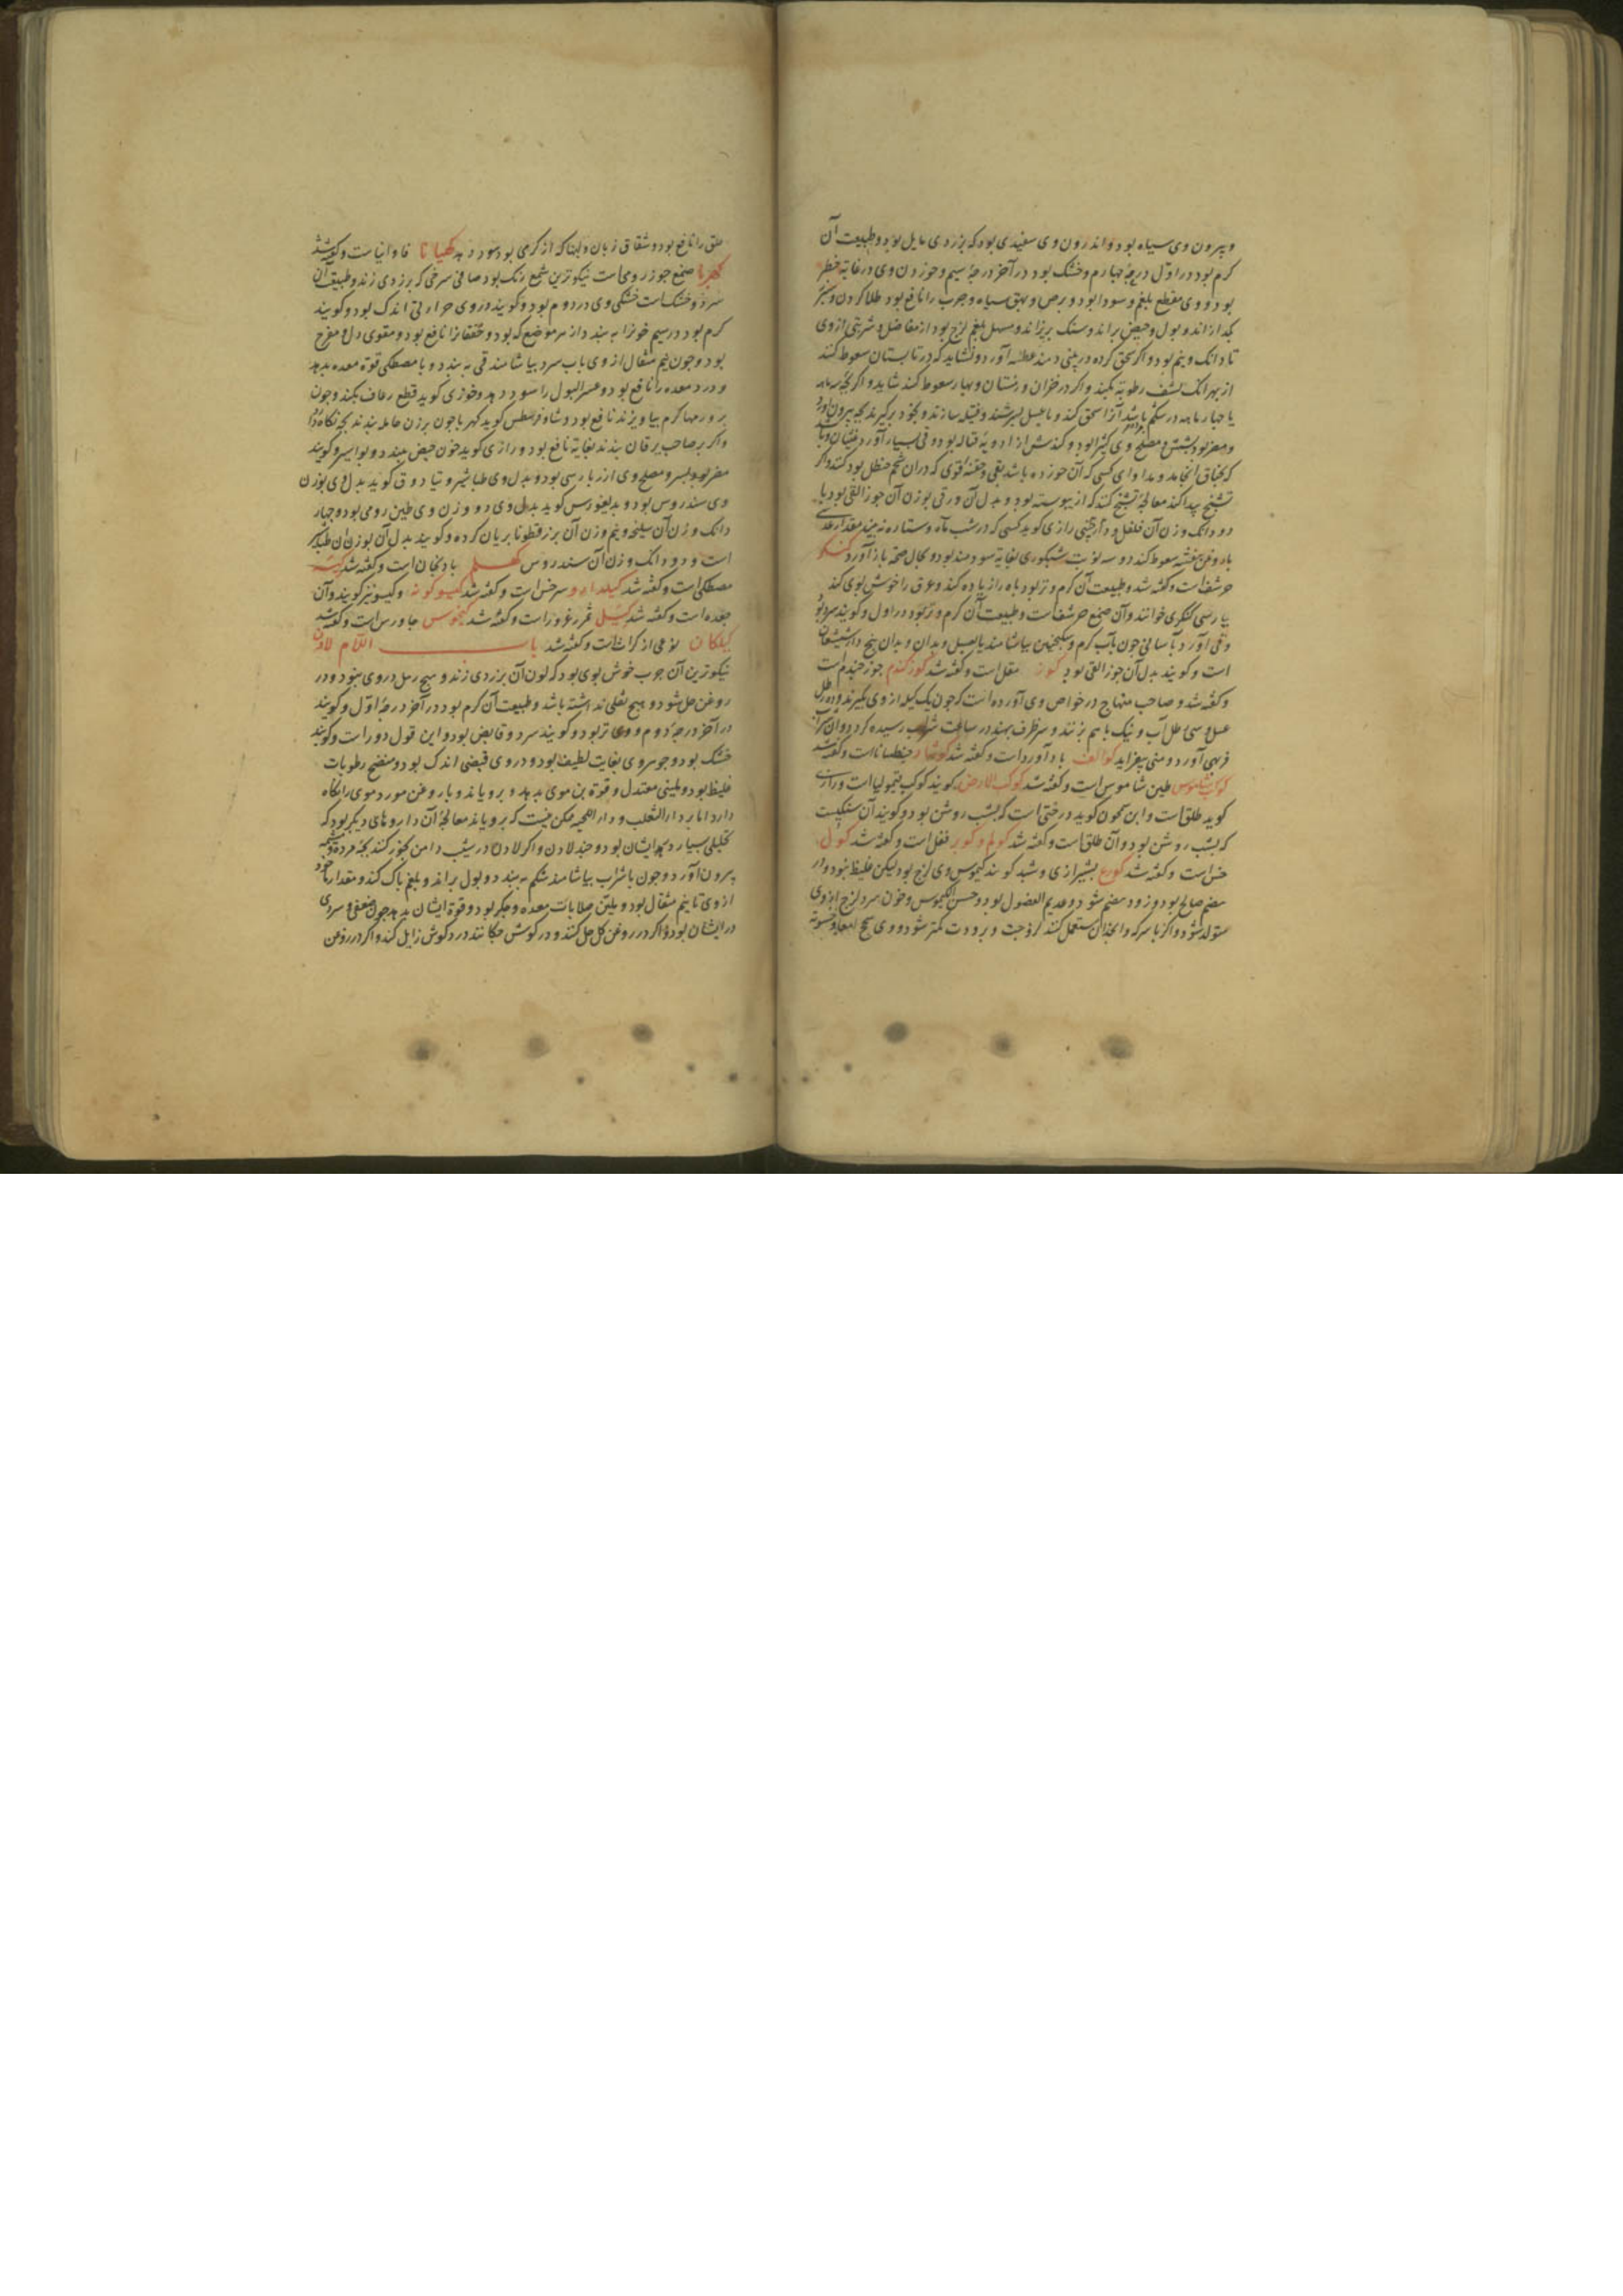 وبیرون وی سیاه بود و اندرون وی سفیدی بود که بزردی مایل بود و طبیعت آن
کرم بود در اول درجهٔ چهارم و خشک بود در آخر درجهٔ سیم و خوردن وی در غایة خطر
بود و وی مقطع بلغم و سودا بود و برص و بهق سیاه و جرب را نافع بود طلا کردن و
بکدازاند و بول و حیض براند و سنک بریزاند و مسهل بلغم لزج بود از مفاصل و شربتی از وی
تا دانک و نیم بود و اکر سحق کرده در بینی دمند عطسه آورد و نشاید که در تابستان سعوط کنند
از بهر آنک نشف رطوبة بکند و اکر در خزان و زمستان و بهار سعوط کنند شاید و اکر بچه سه ماهه
یا چهار ماهه در شکم باشد آنرا سحق کند و با عسل بسرشند و فتیله سازند و بخود برکیرند بچه بیرون آورد
و مضر بود بشش و مصلح وی کثیرا بود و کندش از ادویهٔ قتاله بود و قی بسیار آورد و غثیان
که بخناق انجامد و مداوای کسی که آن خورده باشد بقی و حقنهٔ قوی که در آن شحم حنظل بود کنند و اکر
تشنج پیدا کند معالجهٔ تشنج کنند که از یبوسته بود و بدل آن در قی بوزن آن جوز القی بود با
دو دانک وزن آن فلفل و رازی کوید کسی که در شب ماه و ستاره نه بیند مقدار عدسی
با روغن بنفشه سعوط کند دو سه نوبت شبکوری بغایة سودمند بود و بحال صحة باز آورد کنکر
حرشف است و کفته شد و طبیعت آن کرم و تر بود باه را زیاده کند و عرق را خوش بوی کند
بپارسی کنکری خوانند و آن صمغ حرشف است و طبیعت آن کرم و تر بود در اول و کویند سرد بود
و قی آورد بآسانی چون بآب کرم و سکنجبین بیاشامند یا بعسل و بدان و بدان بیخ
است و کویند بدل آن جوز القی بود کوز مقل است و کفته شد کوزکندم جوز جندم است
و کفته شد و صاحب منهاج در خواص وی آورده است که چون یک کیله از وی بکیرند و ده رطل
عسل و سی رطل آب و نیک بهم بزنند و سر ظرف ببندند در ساعت شراب رسیده کردد و آن شراب
فربهی آورد و منی بیفزاید کوالف باد آورد است و کفته شد کوشاد جنطیانا است و کفته شد
کواب شاموس طین شاموس است و کفته شد کوکب الارض کویند کوکب قیمولیا است و رازی
کوید طلق است و ابن سمجون کوید درختی است که بشب روشن بود و کویند آن سنکیست
که بشب روشن بود و آن طلق است و کفته شد کولم و کور مقل است و کفته شد کول
خس است و کفته شد کورع بشیرازی کویند کیموس وی لزج بود لیکن غلیظ نبود و از
هضم صالح بود و زود هضم شود و عدیم الفضول بود و حسن الکیموس و خون سرد لزج از وی
متولد شود و اکر با سرکه و انجدان مستعمل کنند لزوجت و برودت کمتر شود و وی سحج امعا و خشونة
حلق را نافع بود و شقاق زبان و لبها که از کرمی بود سود دهد کهیانا فاوانیا است و کفته شد
کهربا صمغ جوز رومی است نیکوترین شمع رنک بود صافی سرخی که بزردی زند و طبیعت آن
سرد و خشک است خشکی وی در دوم بود و کویند در وی حرارتی اندک بود و کویند
کرم بود در سیم خون را به بندد از هر موضع که بود و خفقان را نافع بود و مقوی دل و مفرح
بود و چون نیم مثقال از وی بآب سرد بیاشامند قی به بندد و با مصطکی قوة معده بدهد
و درد معده را نافع بود و عسر البول را سود دهد و خوزی کوید قطع رعاف بکند و چون
بر ورمها کرم بیاویزند نافع بود و کوید کهربا چون بر زن حامله بندند بچه نکاه دارد
و اکر بر صاحب یرقان بندند بغایة نافع بود و رازی کوید خون حیض ببندد و بواسیر و کویند
مضر بود بسر و مصلح وی بود و بدل وی طباشیر و تیادوق کوید بدل وی بوزن
وی سندروس بود و بدیغورس کوید بدل وی دو وزن وی طین رومی بود و چهار
دانک وزن آن سلیخه و نیم وزن آن بزر قطونا بریان کرده و کویند بدل آن بوزن آن طباشیر
است و دو دانک وزن آن سندروس کهلم بادنجان است و کفته شد کیه
مصطکی است و کفته شد کیلدارو سرخس است و کفته شد کیبوکونه و کیسو نیز کویند و آن
جعده است و کفته شد کیل ثمر زعرور است و کفته شد کیخرس جاورس است و کفته شد
کیلکان نوعی از کراث است و کفته شد باب اللام لادن
نیکوترین آن چرب خوش بوی بود که لون آن بزردی زند و هیچ رمل در وی نبود و در
روغن حل شود و هیچ ثقلی نداشته باشد و طبیعت آن کرم بود در آخر درجهٔ اول و کویند
در آخر درجهٔ دوم و وی تر بود و کویند سرد و قابض بود و این قول دور است و کویند
خشک بود و جوهر وی بغایت لطیف بود و در وی قبضی اندک بود و منضج رطوبات
غلیظ بود و ملینی معتدل و قوة بن موی بدهد و برویاند و با روغن مورد موی را نکاه
دارد اما بر داء الثعلب و داء الحیه ممکن نیست که برویاند معالجهٔ آن داروهای دیکر بود که
تحلیلی بسیار در ایشان بود و جند لادن و اکر لادن در شیب دامن بخور کنند بچهٔ مرده و مشیمه
بیرون آورد و چون با شراب بیاشامند شکم به بندد و بول براند و بلغم پاک کند و مقدار
از وی تا نیم مثقال بود و ملین صلابات معده و جکر بود و قوة ایشان بدهد چون ضعفی و سردی
در ایشان بود و اکر در روغن کل حل کنند و در کوش چکانند درد کوش زایل کند و اکر در روغن